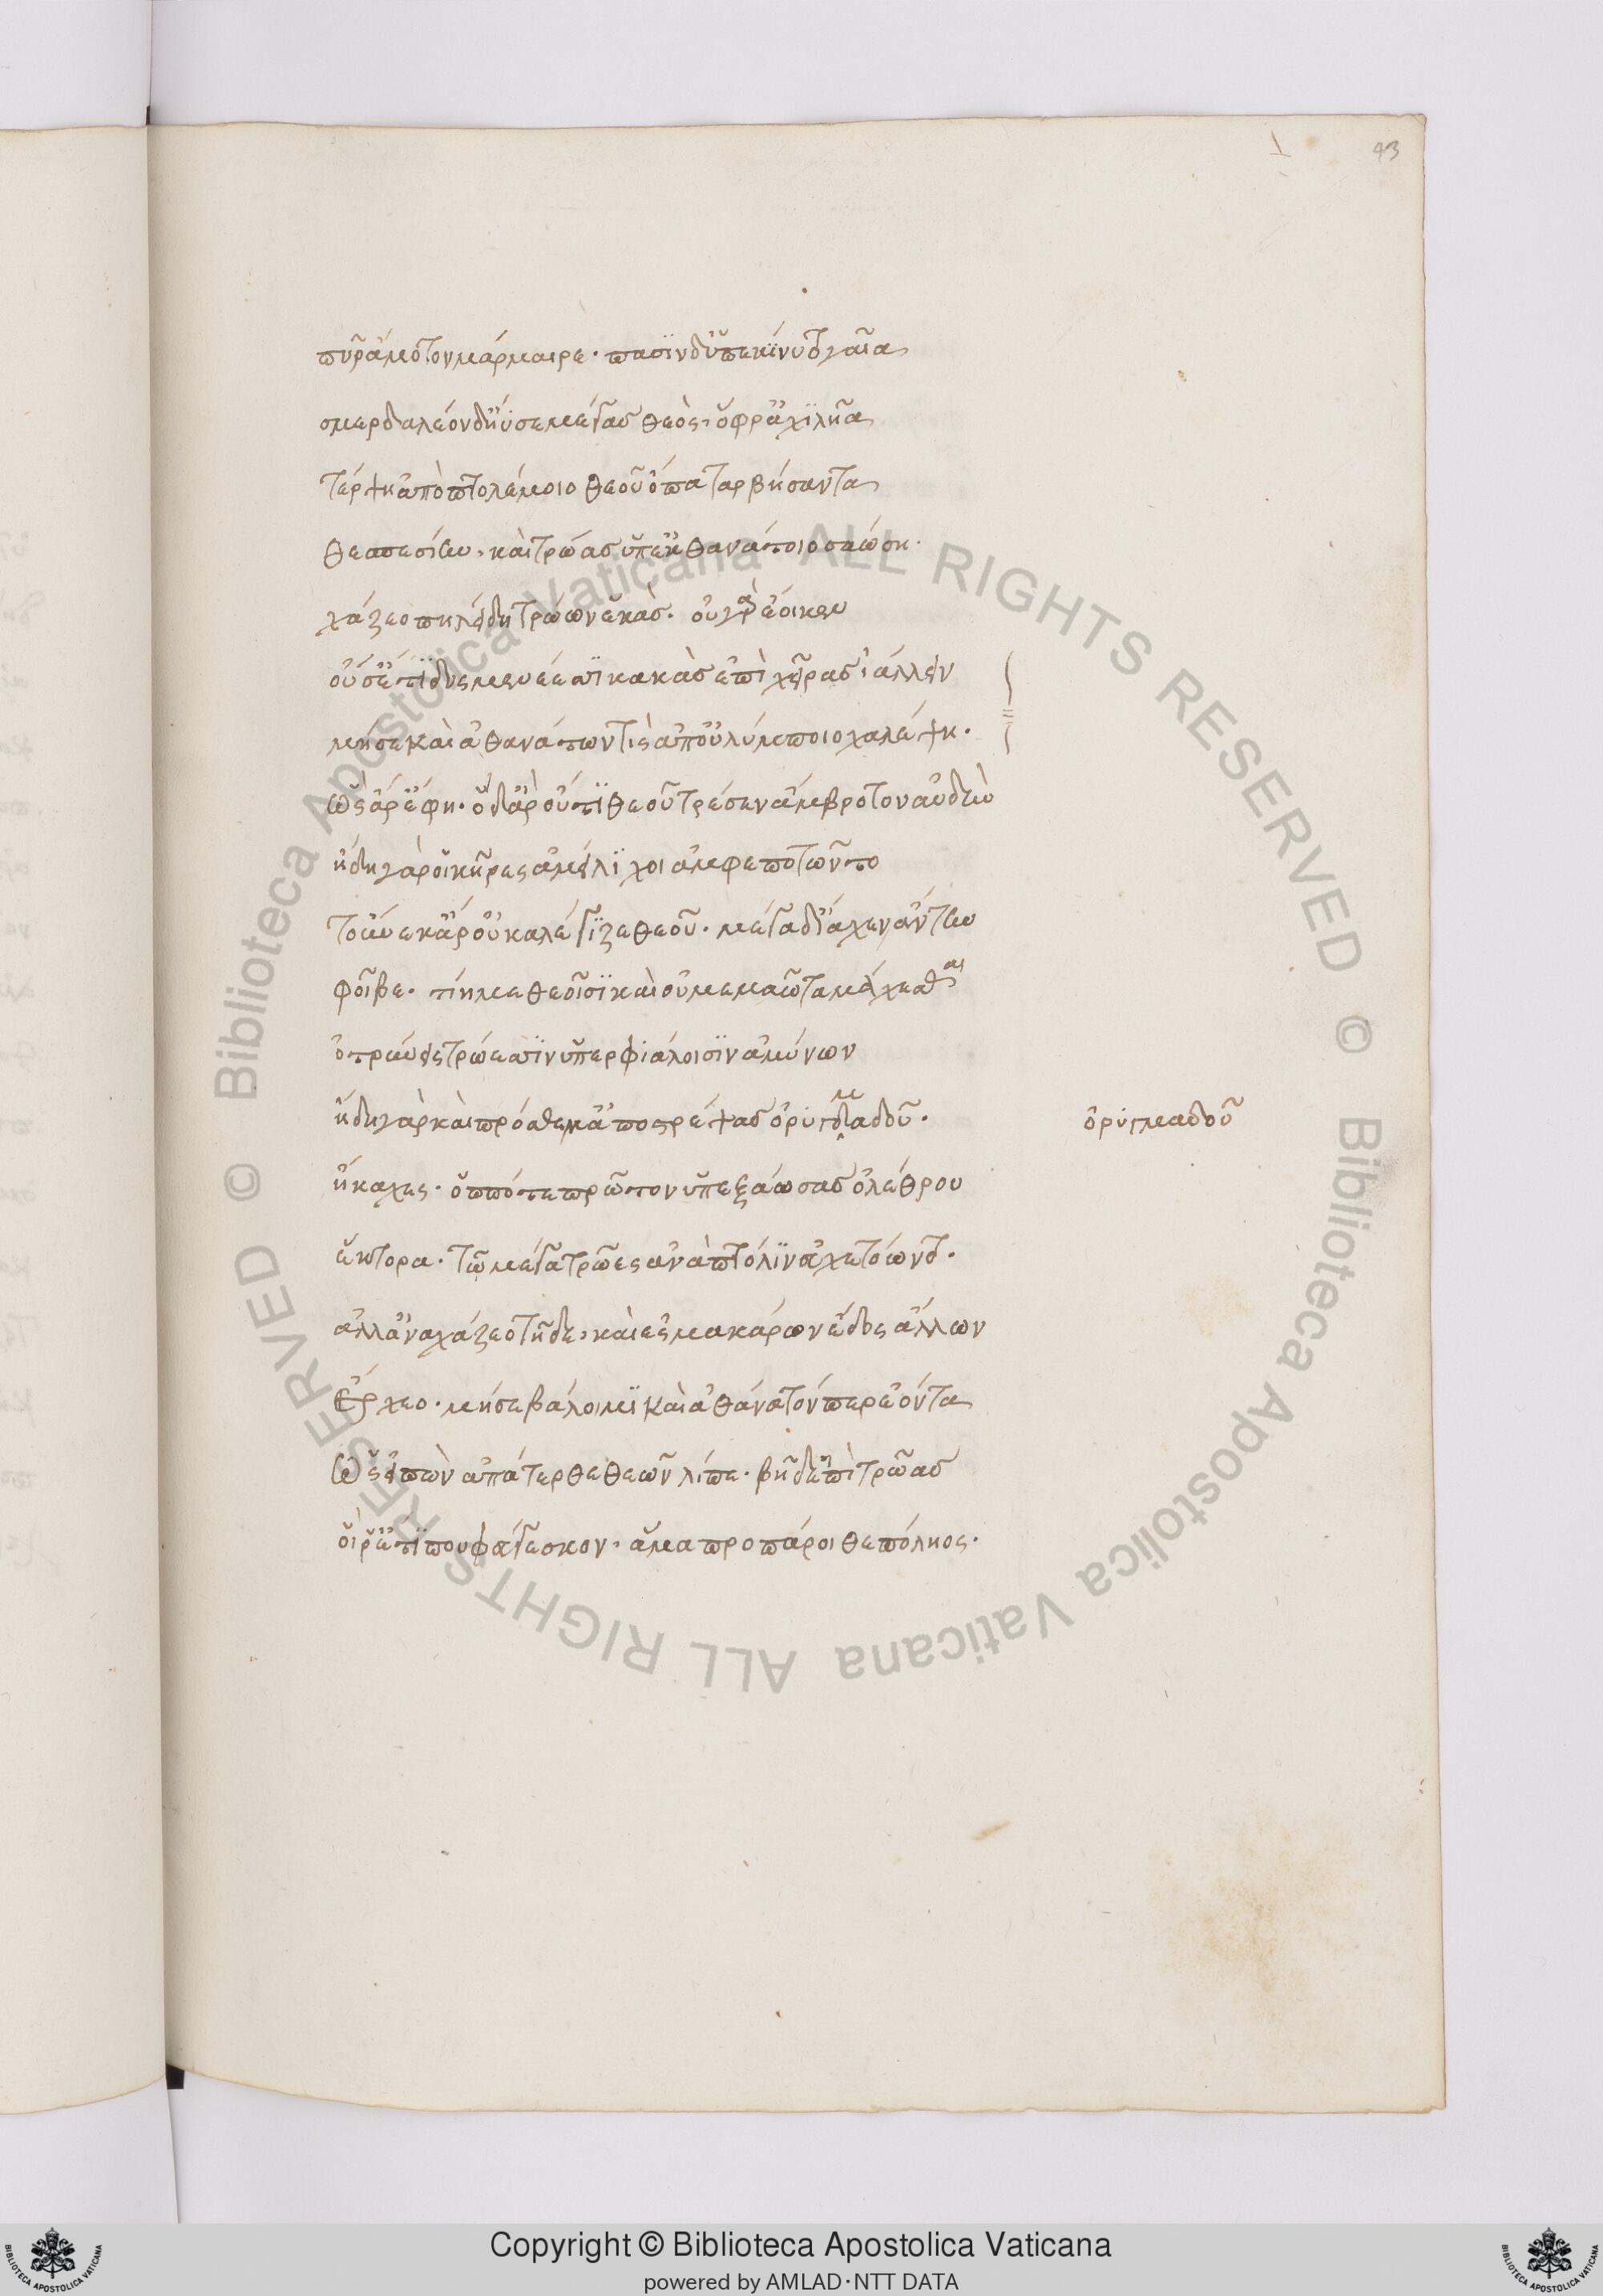 πῦρ ἄμοτον μάρμαιρε· πασὶν δ' ὑπεκίνυτο γαῖα
σμερδαλέον δ' ἤϋσε μέγας θεὸς, ὄφρ' ἀχιλῆα
τέρψη ἀπὸ πτολέμοιο θεοῦ ὄπα ταρβήσαντα
θεσπεσίην, καὶ τρώας ὑπὲκ θανάτοιο σαώση.
χάζεο πηλείδη τρώων ἑκὰς. οὐ γὰρ ἔοικεν
οὔ σ' ἔτι δυσμενέεσσι κακὰς ἐπὶ χεῖρας ἰάλλειν
μή σε καὶ ἀθανάτων τὶς ἀπ' οὐλύμποιο χαλέψη.
ὣς ἄρ' ἔφη. ὁ δ' ἄρ' οὔτι θεοῦ τρέσεν ἄμβροτον αὐδὴν
ἤδη γάρ οἱ κῆρες ἀμείλιχοι ἀμφεποτῶντο
τοὔνεκ' ἄρ' οὐκ ἀλέγιζε θεοῦ. μέγα δ' ἴαχεν ἄντην
φοῖβε. τίη με θεοῖσι καὶ οὐ μεμαῶτα μάχεσθαι
ὀτρύνεις τρώεσσιν ὑπερφιάλοισιν ἀμύνων
ἤδη γὰρ καὶ πρόσθεμ' ἀποστρέψας ὀρυγμαδοῦ.
ὀρυγμαδοῦ
ἤκαχες. ὁππότε πρῶτον ὑπεξάωσας ὀλέθρου
ἕκτορα. τῶ μέγα τρῶες ἀνὰ πτόλιν ἀχετόωντο.
ἀλλ' ἀναχάζεο τῆδε, καὶ ἐς μακάρων ἕδος ἄλλων
Ἔρχεο. μή σε βάλοιμι καὶ ἀθάνατόν περ ἐόντα
ὣς εἰπὼν ἀπάτερθε θεῶν λίπε. βῆ δ' ἐπὶ τρῶας
οἵ ῥ' ἔτι που φάγεσκον, ἅμα προπάροιθε πόληος.
43